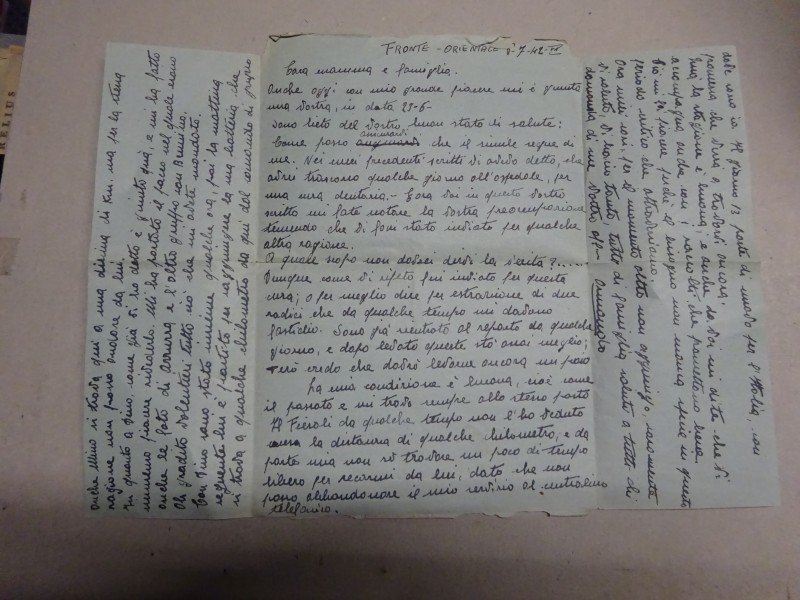 FRONTE - ORIENTALE 8-7-42-XX
Cara mamma e famiglia.
Anche oggi con mio grande piacere mi è giunta
una vostra, in data 25-6-
sono lieto del vostro buon stato di salute:
Come posso che il simile segue di
me. Nei miei precedenti scritti vi avevo detto, che
avrei trascorso qualche giorno all'ospedale, per
una cura dentaria. - Ecco voi in questo vostro
scritto mi fate notare la vostra preoccupazione
temendo che vi fosse stato inviato per qualche
altra ragione.
A quale scopo non dovrei dirvi la verità?.....
Dunque come vi ripeto fui inviato per questa
cura; o per meglio dire per estrazione di due
radici che da qualche tempo mi davano
fastidio. Sono già rientrato al reparto da qualche
giorno, e dopo levato queste sto assai meglio;
però credo che dovrò levarne ancora un paio
La mia condizione è buona, cioè come
il passato e mi trovo sempre allo stesso posto
Il Fieroli da qualche tempo non l'ho veduto
causa la distanza di qualche chilometro, e da
parte mia non so trovare un poco di tempo
libero per recarmi da lui, dato che non
posso abbandonare il mio servizio al centralino
telefonico.
anche Mino si trova qui a una decina di Km. ma per la stessa
ragione non posso andare da lui.
In quanto a Pino, come già vi ho detto è giunto qua, e mi ha fatto
piacere rivederlo. Mi ha portato il pacco nel quale erano
anche le foto di azzurra e l'altro gruppo con armino.
Ho gradito volentieri tutto ciò che mi avete mandato.
Con Pino sono stato insieme qualche ora, poi la mattina
seguente lui è partito per raggiungere la sua batteria che
si trova a qualche chilometro da qui dal comando di gruppo
dove sono io. Il giorno 13 parte di nuovo per l'Italia, con
promessa che verrà a trovarvi ancora.
Qua la stagione è buona, e anche da voi mi dite che vi
accompagna anche con i raccolti che promettono bene.
Ciò mi fa piacere perchè il bisogno non manca specie in questo
periodo critico che attraversiamo.
Ora miei cari, per il momento altro non aggiungo, caramente
vi saluto, vi bacio tanto, tutti di famiglia saluto a tutti chi
domanda di me vostro aff. Armando